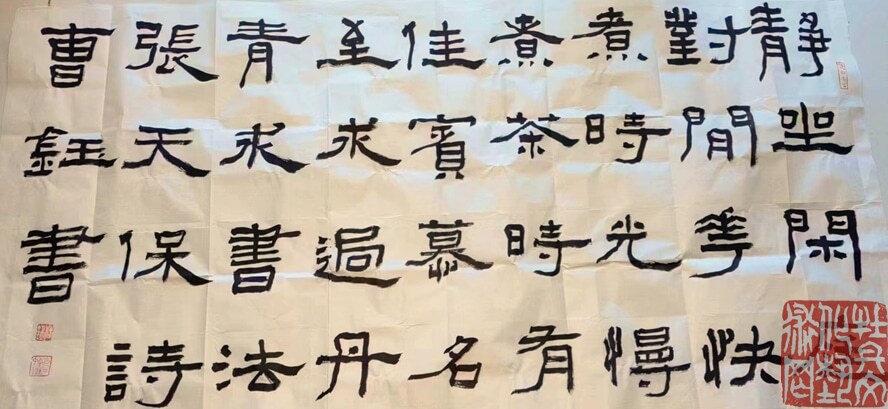 靜坐閑
對閒花快
煮時光慢
煮茶時有
佳賓慕名
至求過丹
青求書法
張天保詩
曹鈺書